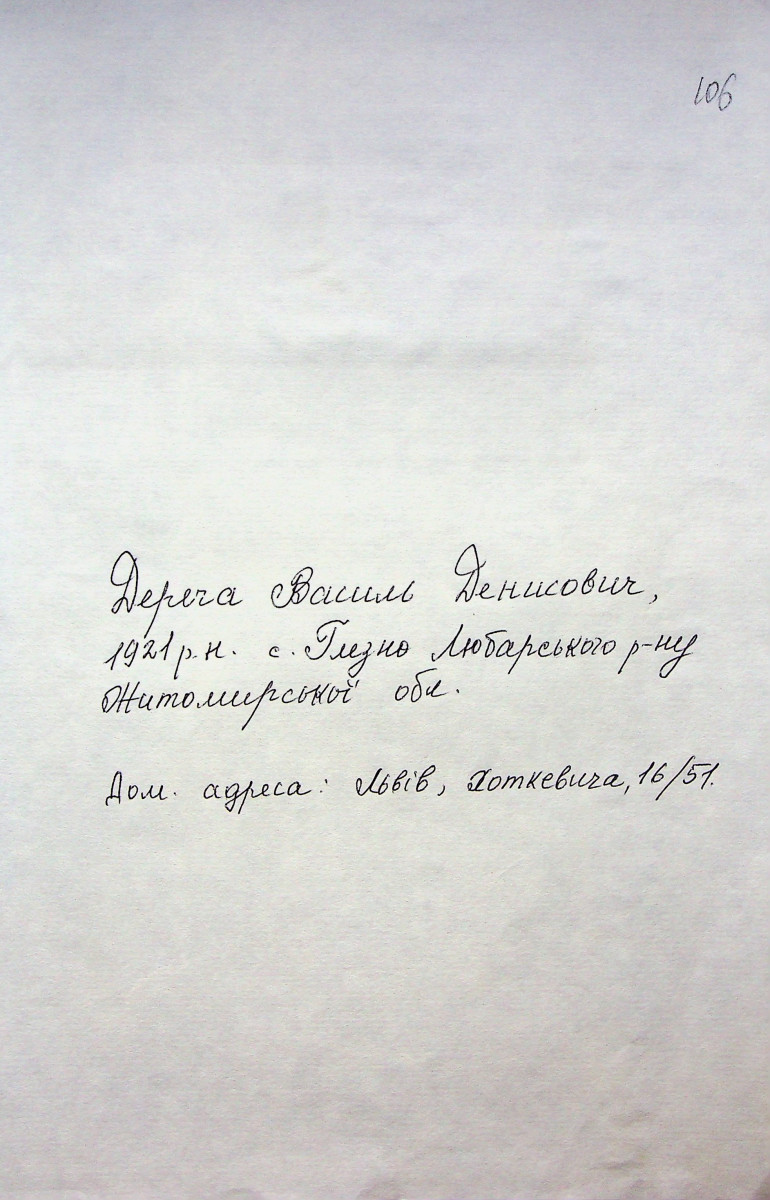 106
Дереча Василь Денисович,
1921 р.н. с. Глезно Любарського р-ну
Житомирської обл.
Дом. адреса: Львів, Хоткевича, 16/51.